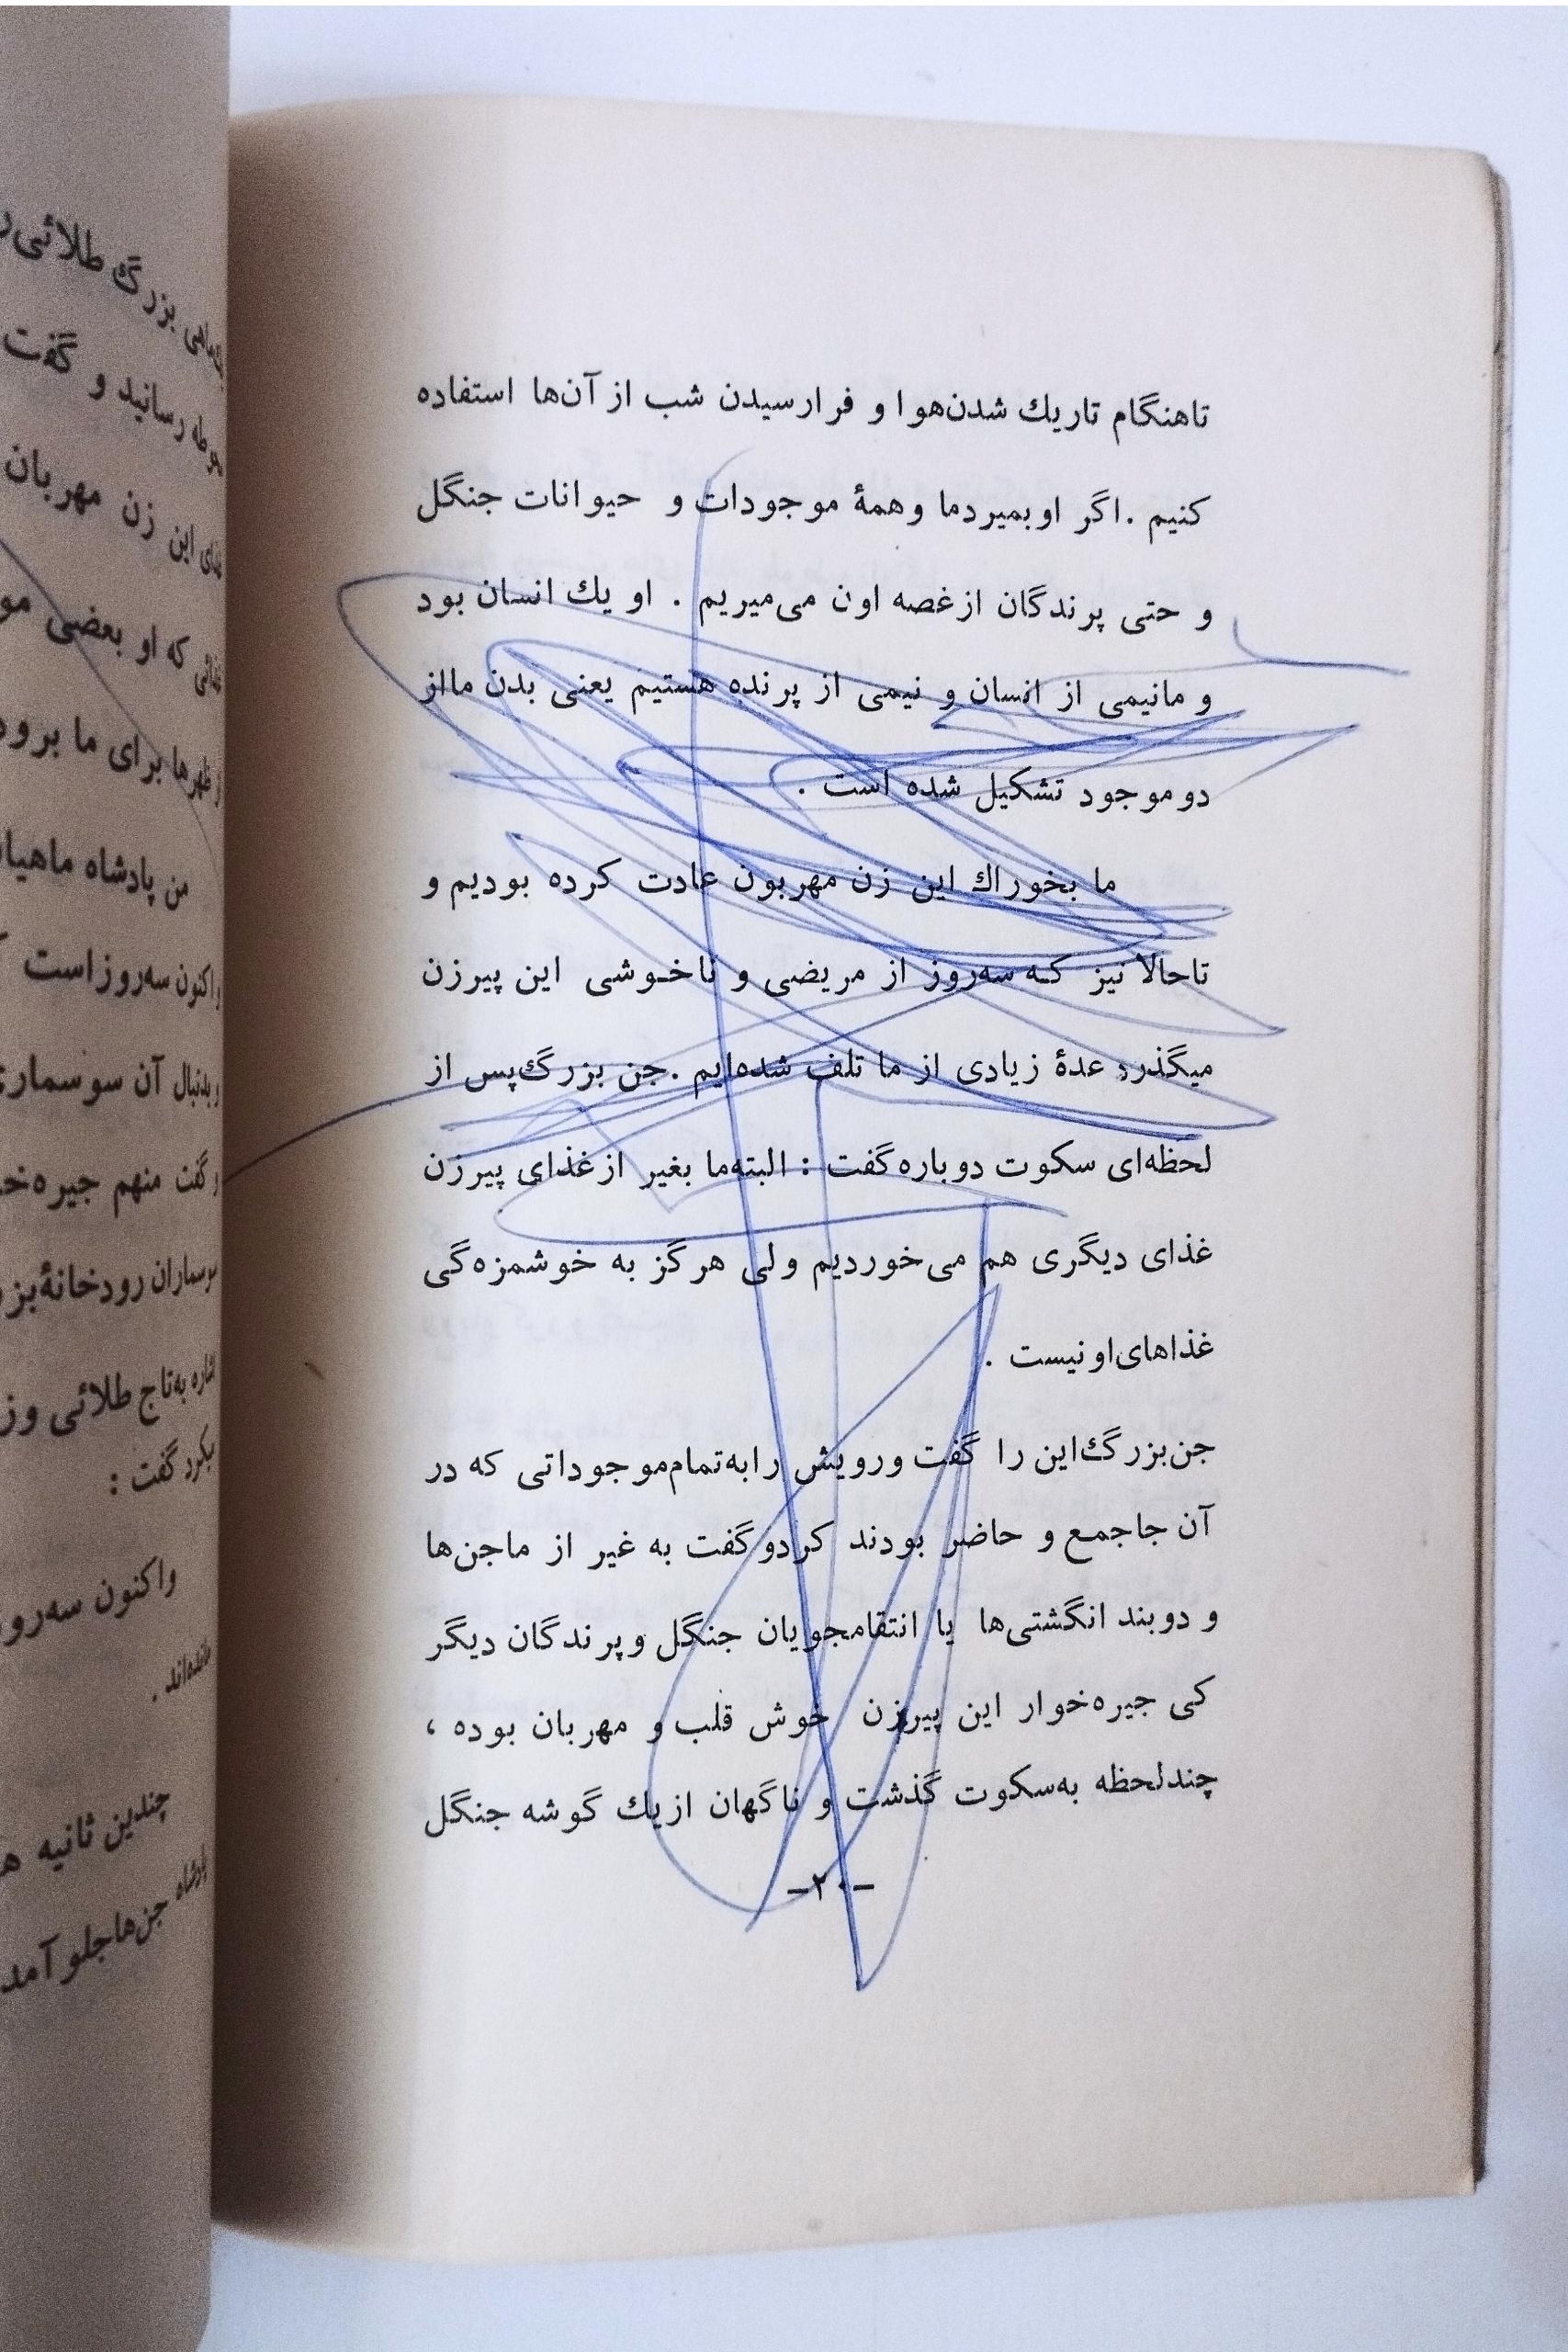 تاهنگام تاریك شدن‌هوا و فرارسیدن شب از آن‌ها استفاده
کنیم .اگر اوبمیردما وهمهٔ موجودات و حیوانات جنگل
و حتی پرندگان ازغصه اون می‌میریم . او یك انسان بود
و مانیمی از انسان و نیمی از پرنده هستیم یعنی بدن مااز
دوموجود تشکیل شده است .
ما بخوراك این زن مهربون عادت کرده بودیم و
تاحالا نیز که سه‌روز از مریضی و ناخوشی این پیرزن
میگذرد عدهٔ زیادی از ما تلف شده‌ایم .جن بزرگ‌پس از
لحظه‌ای سکوت دوباره‌گفت : البته‌ما بغیر ازغذای پیرزن
غذای دیگری هم می‌خوردیم ولی هرگز به خوشمزه‌گی
غذاهای‌اونیست .
جن‌بزرگ‌این را گفت ورویش رابه‌تمام‌موجوداتی که در
آن جاجمع و حاضر بودند کردوگفت به غیر از ماجن‌ها
و دوبند انگشتی‌ها یا انتقامجویان جنگل وپرندگان دیگر
کی جیره‌خوار این پیرزن خوش قلب و مهربان بوده ،
چندلحظه به‌سکوت گذشت و ناگهان ازیك گوشه جنگل
–۲۰–
ماهی بزرگ طلائی
رسانید و گفت
این زن مهربان
که او بعضی
ظهرها برای ما
من پادشاه ماهیان
واکنون سه‌روزاست
و بدنبال آن سوسمار
و گفت منهم جیره‌
سوسماران رودخانهٔ
اشاره به‌تاج طلائی و
میکرد گفت :
واکنون سه‌رو
مانده‌اند .
چندین ثانیه
پادشاه جن‌هاجلو آمد